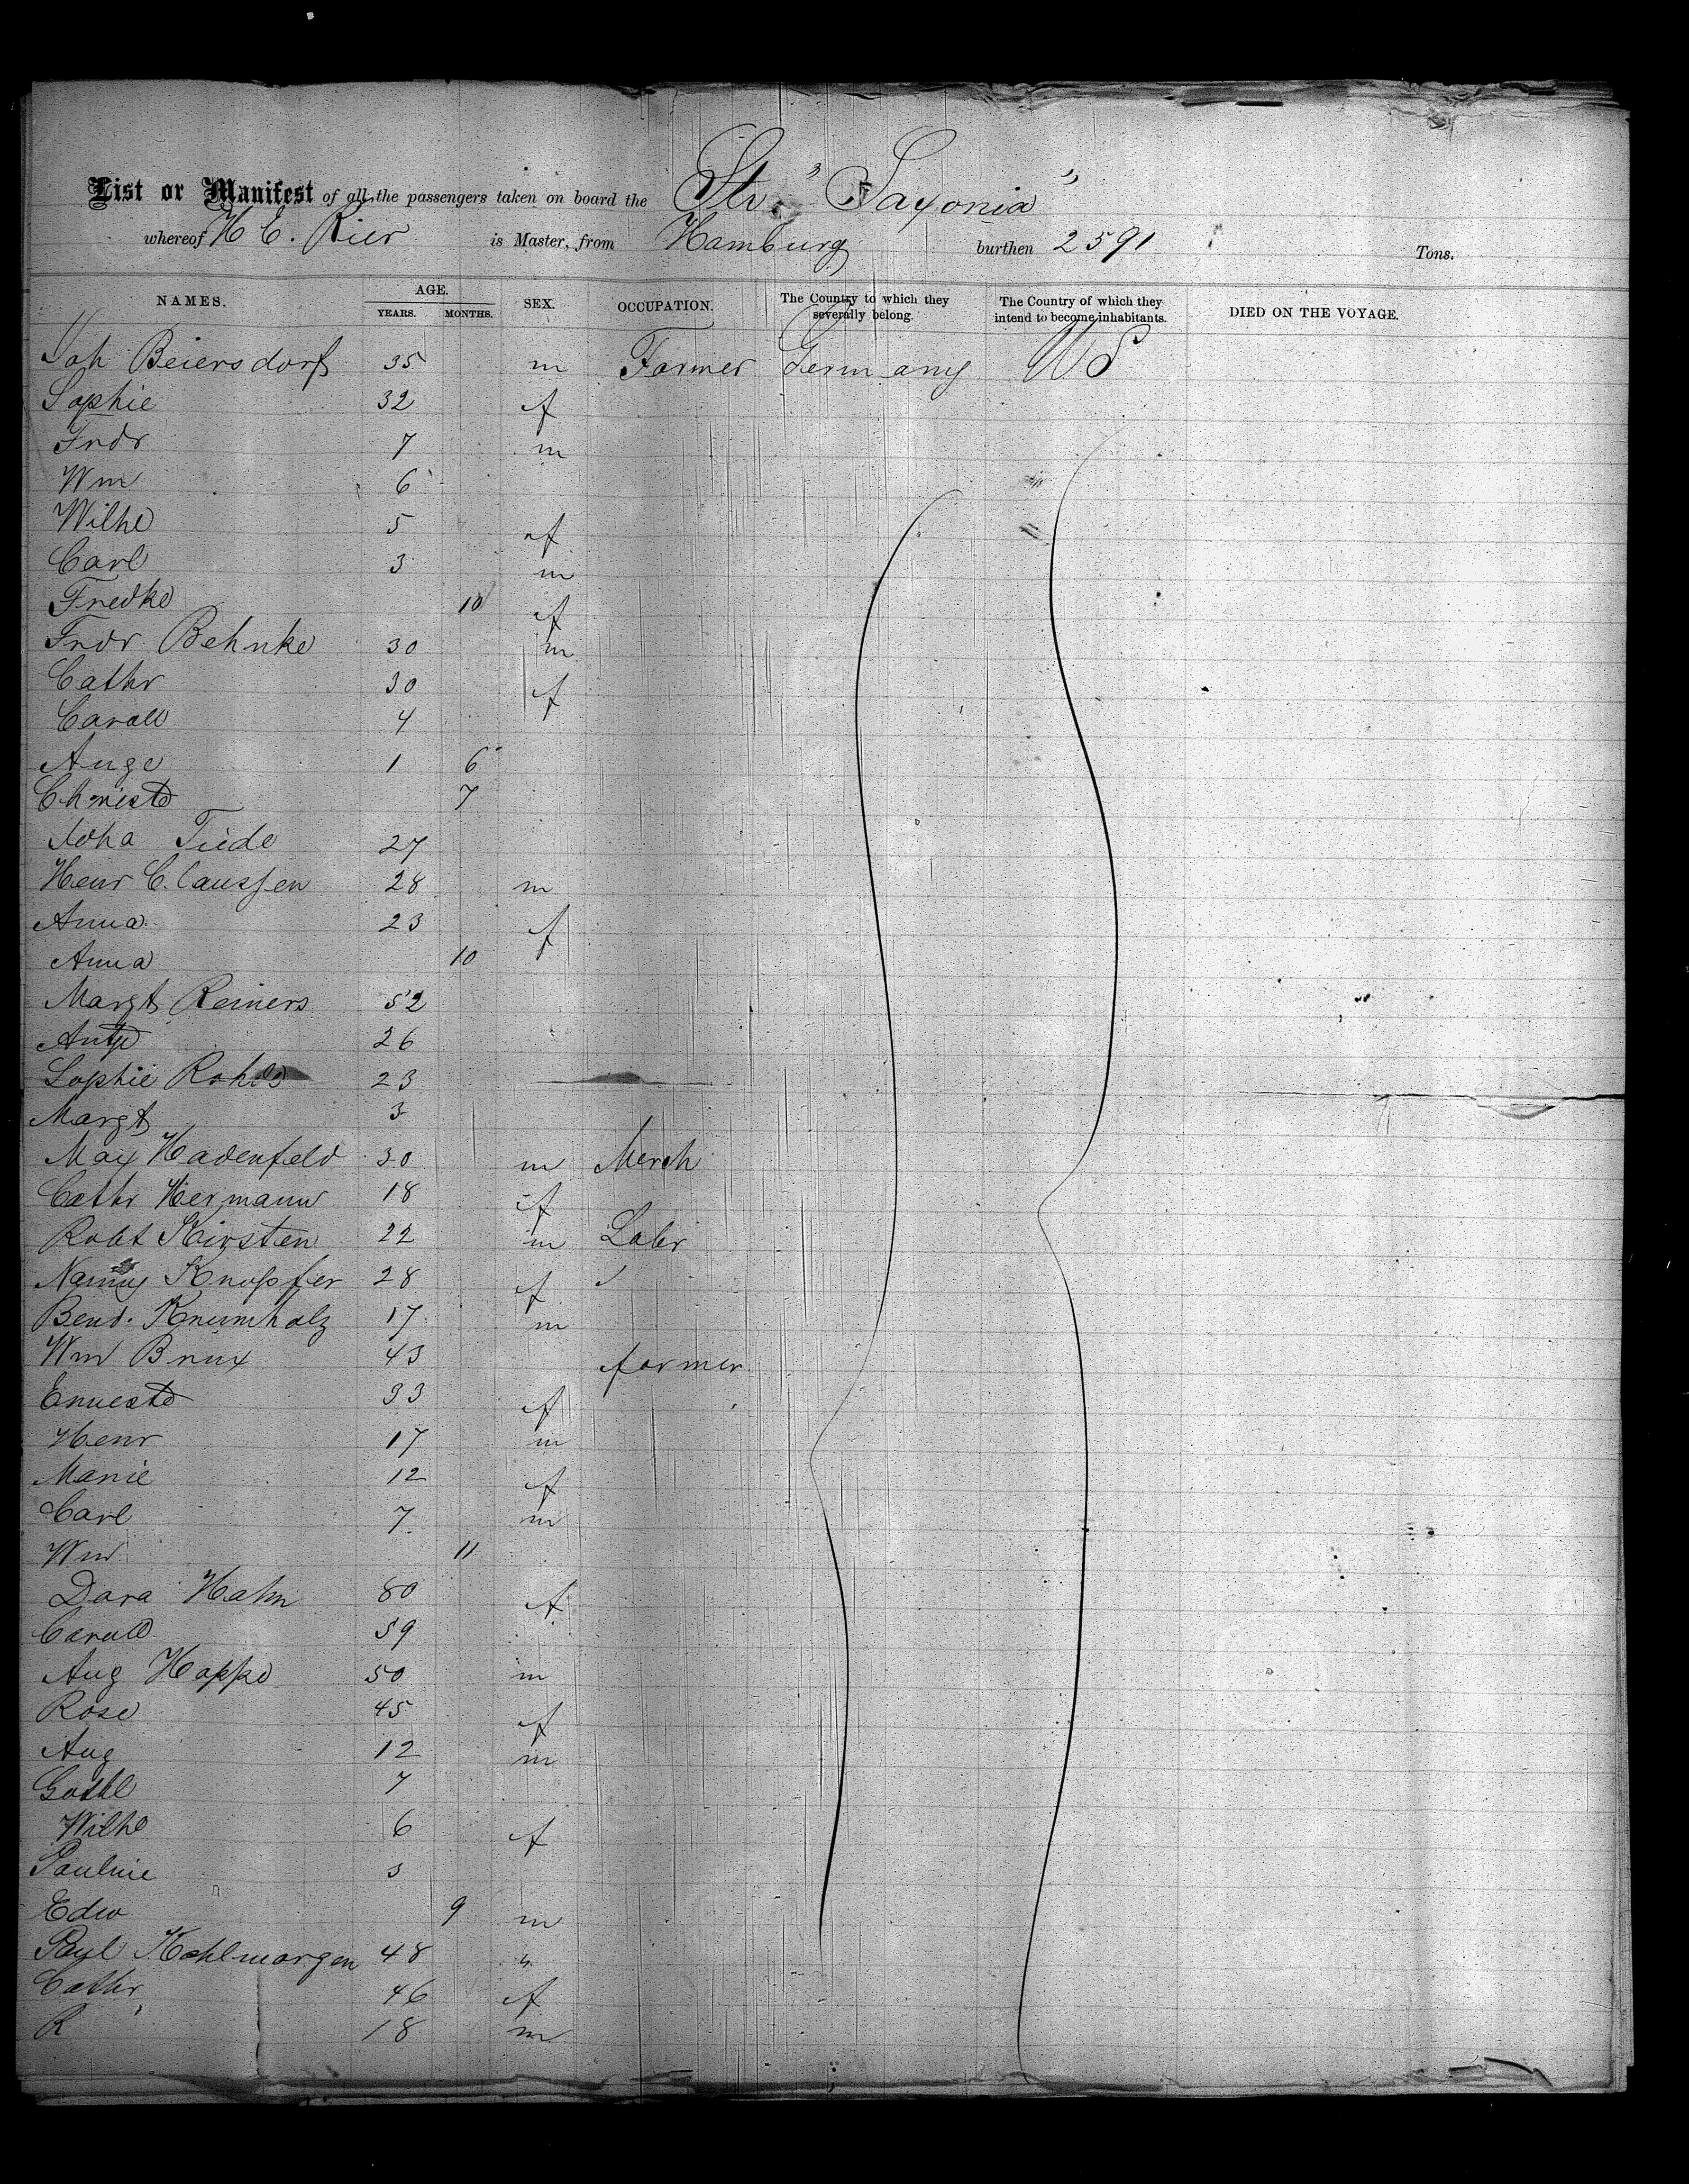 List or Manifest of all the passengers taken on board the Str. "Saxonia"
whereof H E. Kier is Master, from Hamburg burthen 2591 Tons.
NAMES. AGE. YEARS. MONTHS. SEX. OCCUPATION. The Country to which they severally belong. The Country of which they intend to become inhabitants. DIED ON THE VOYAGE.
Joh Beiersdorf 35 m Farmer Germany US
Sophie 32 f
Frdr 7 m
Wm 6
Wilhe 5 f
Carl 3 m
Fredke 10 f
Frdr Behnke 30 m
Cathr 30 f
Carole 4
Auge 1 6
Christe 7
Joha Tiede 27
Henr Claussen 28 m
Anna 23 f
Anna 10
Margt Reiners 52
Antje 26
Sophie 23
Margt 3
Max Hadenfeld 30 m Merch
Cathr Hermann 18 f
Robt Kirsten 22 m Labr
Nanny Knopfer 28 f
Bend. Krumholz 17 m
Wm Brux 43 farmer
Erneste 33 f
Henr 17 m
Marie 12 f
Carl 7 m
Wm 11
Dora Hahn 80 f
Carole 59
Aug Hoppe 50 m
Rose 45 f
Aug 12 m
Gottl 7
Wilhe 6 f
Pauline 3
Edw 9 m
Paul Kohlmorgen 48 "
Cathr 46 f
R 18 m